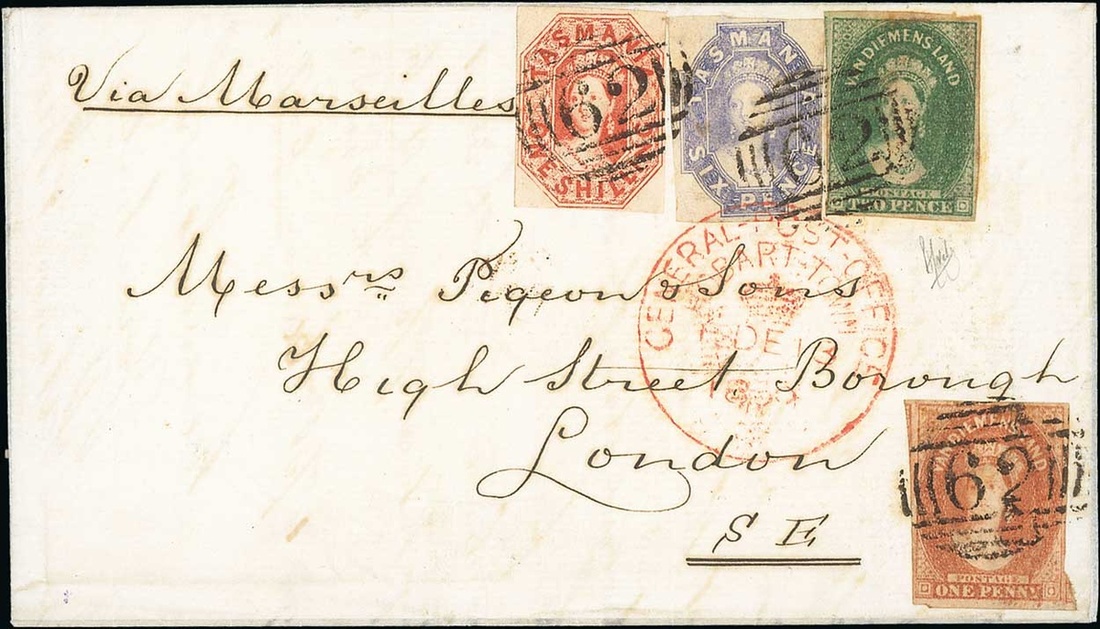 Via Marseilles
TASMAN
ONE SHILL
62
TASMAN
SIX PENCE
VAN DIEMENS LAND
POSTAGE
TWO PENCE
62
GENERAL-POST-OFFICE
HOBART-TOWN
DE
Messrs Pigeon & Sons
High Street Borough
London
S E
VAN DIEMENS LAND
62
POSTAGE
ONE PENNY